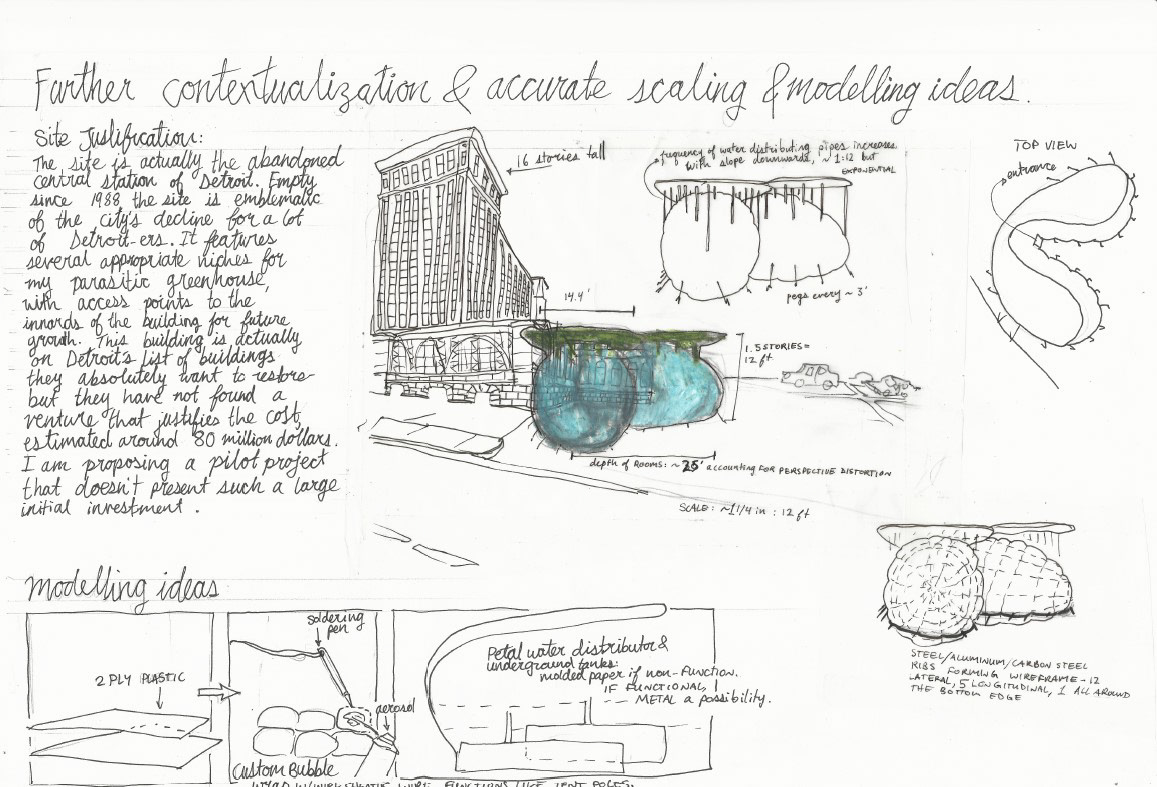 Further contextualization & accurate scaling & modelling ideas.
Site Justification:
The site is actually the abandoned
central station of Detroit. Empty
since 1988 the site is emblematic
of the city's decline for a lot
of Detroit-ers. It features
several appropriate niches for
my parasitic greenhouse,
with access points to the
innards of the building for future
growth. This building is actually
on Detroit's list of buildings
they absolutely want to restore-
but they have not found a
venture that justifies the cost,
estimated around 80 million dollars.
I am proposing a pilot project
that doesn't present such a large
initial investment.
16 stories tall
frequency of water distributing pipes increases
with slope downwards, ~1:12 but
EXPONENTIAL
pegs every ~ 3'
TOP VIEW
entrance
14.4'
1.5 STORIES =
12 ft
depth of ROOMS: ~ 25' accounting FOR PERSPECTIVE DISTORTION
SCALE: ~1 1/4 in : 12 ft
STEEL/ALUMINUM/CARBON STEEL
RIBS FORMING WIREFRAME - 12
LATERAL, 5 LONGITUDINAL, 1 ALL AROUND
THE BOTTOM EDGE
modelling ideas
2 PLY PLASTIC
soldering
pen
aerosol
Custom Bubble
Petal water distributor &
underground tanks:
molded paper if non-function.
IF FUNCTIONAL,
METAL a possibility.
FUNCTIONS LIKE TENT POLES.